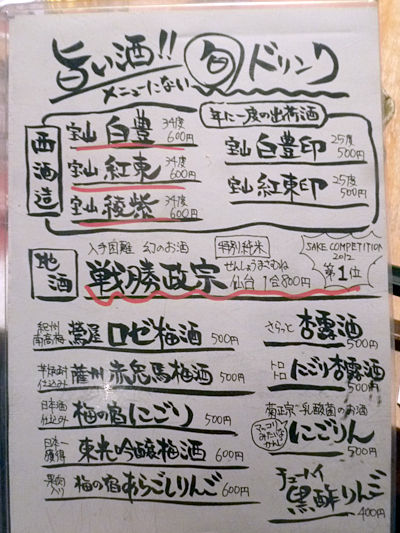 旨い酒!!
メニューにない
旬ドリンク
西酒造
宝山 白豊 34度 600円
宝山 紅東 34度 600円
宝山 綾紫 34度 600円
年に一度の出荷酒
宝山 白豊印 25度 500円
宝山 紅東印 25度 500円
地酒
入手困難 幻のお酒
特別純米
戦勝政宗
せんしょうまさむね
仙台 1合800円
SAKE COMPETITION
2012
第1位
紀州
南高梅
蔦屋 ロゼ梅酒 500円
芋焼酎
仕込み
薩州 赤兎馬梅酒 500円
日本酒
仕込み
梅の宿にごり 500円
日本一
獲得
東光吟醸梅酒 600円
果肉
入り
梅の宿あらごしりんご 600円
さらっと 杏露酒 500円
トロトロ にごり杏露酒 500円
菊正宗 乳酸菌のお酒
マッコリ
みたいな
かんじ
にごりん
500円
チューハイ
黒酢りんご
400円